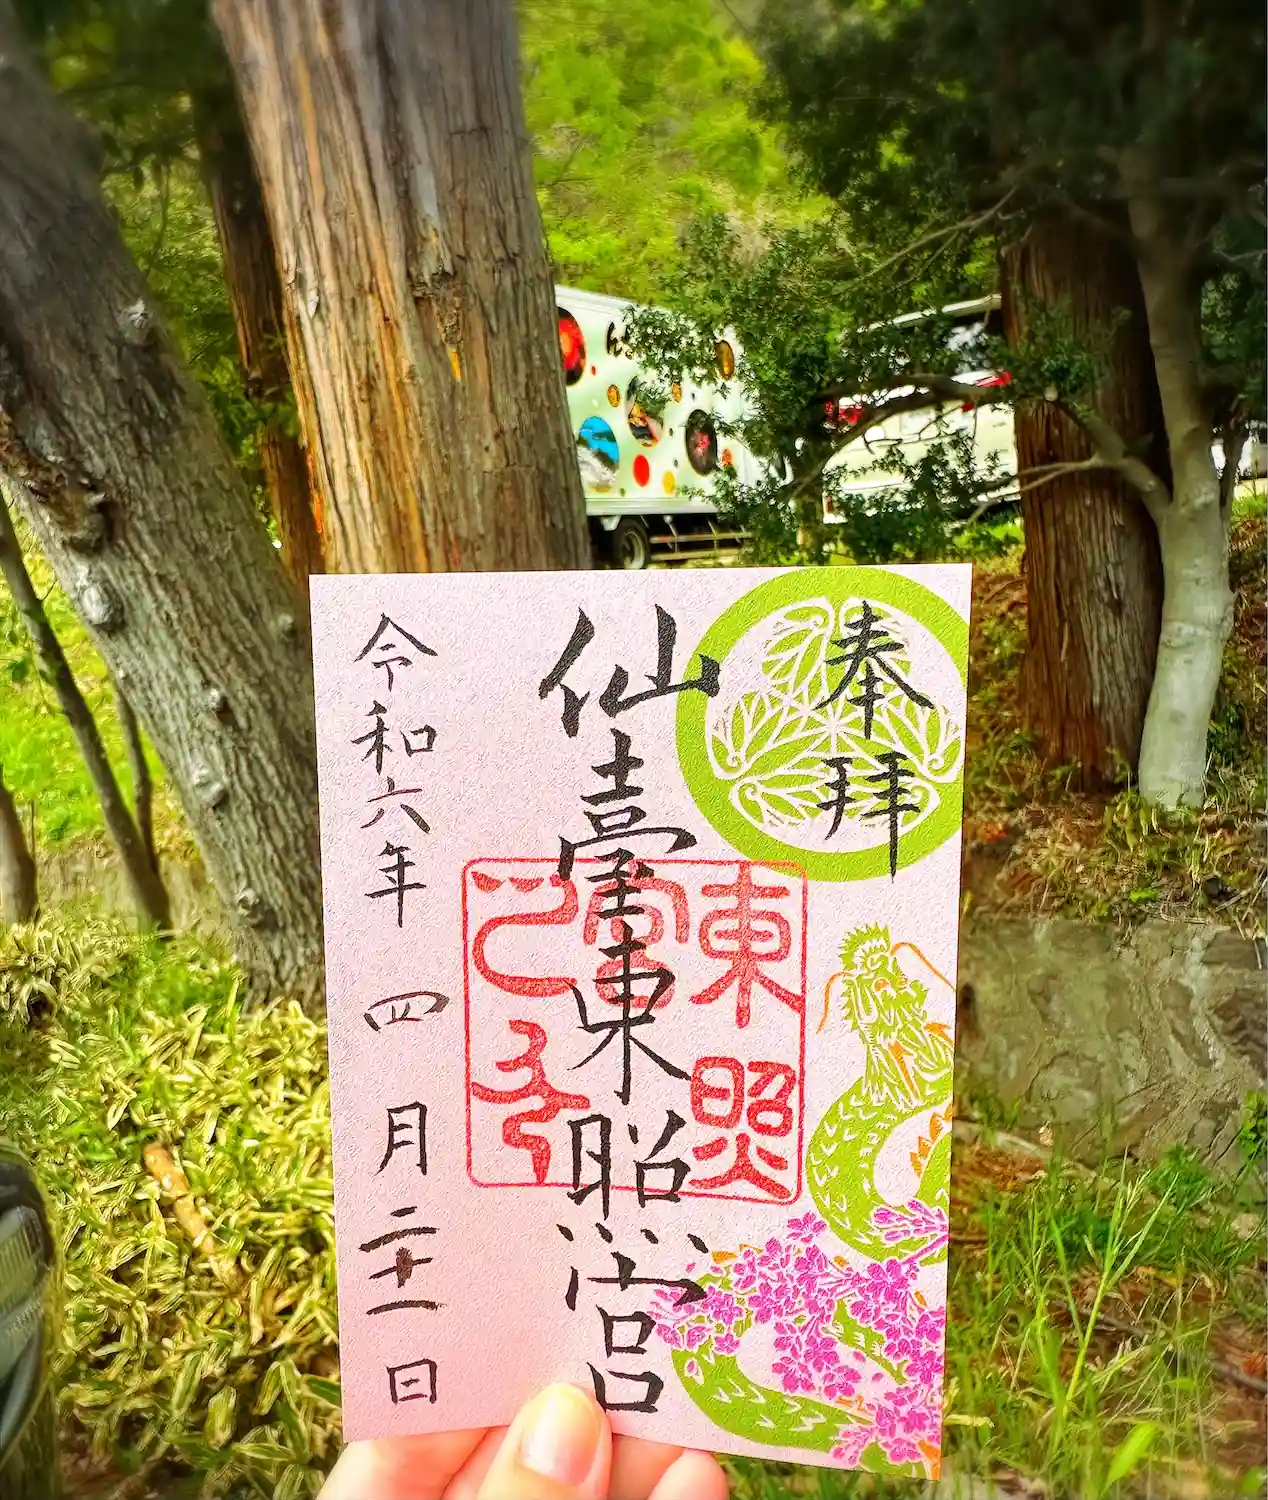 奉拜
仙臺東照宮
東照宮
令和六年 四月二十一日